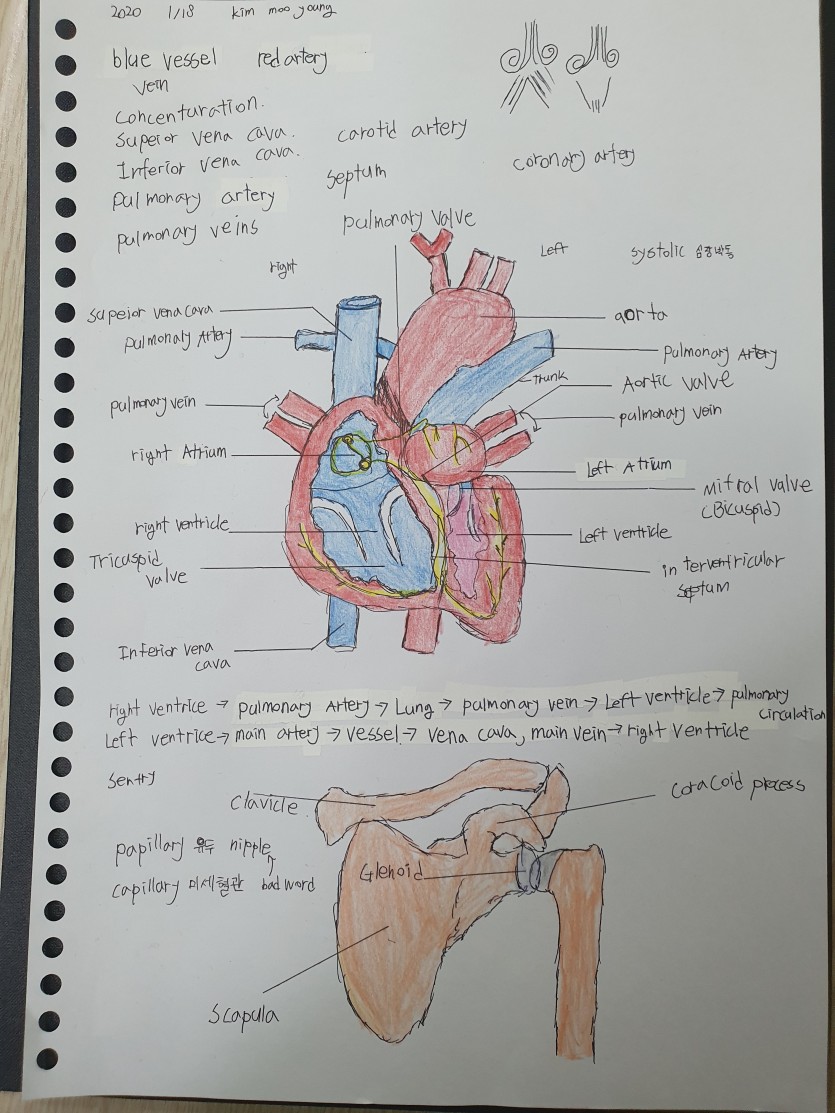 2020 1/18 kim moo young
blue vessel red artery
vein
concenturation.
Supeior vena cava. carotid artery
Inferior vena cava. coronary artery
pulmonary artery septum
pulmonary veins pulmonary valve
right Left systolic 심장박동
Supeior vena cava aorta
pulmonary Artery pulmonary Artery
trunk Aortic valve
pulmonary vein pulmonary vein
right Atrium Left Atrium
Mitral valve
(Bicuspid)
right ventricle Left ventricle
Tricuspid
valve
interventricular
septum
Inferior vena
cava
right ventrice → pulmonary Artery → Lung → pulmonary vein → Left ventricle → pulmonary
circulation
Left ventrice → main artery → vessel → vena cava, main vein → right ventricle
sentry
clavicle coracoid process
papillary 유두 nipple
Glenoid
capillary 미세혈관 bad word
scapula